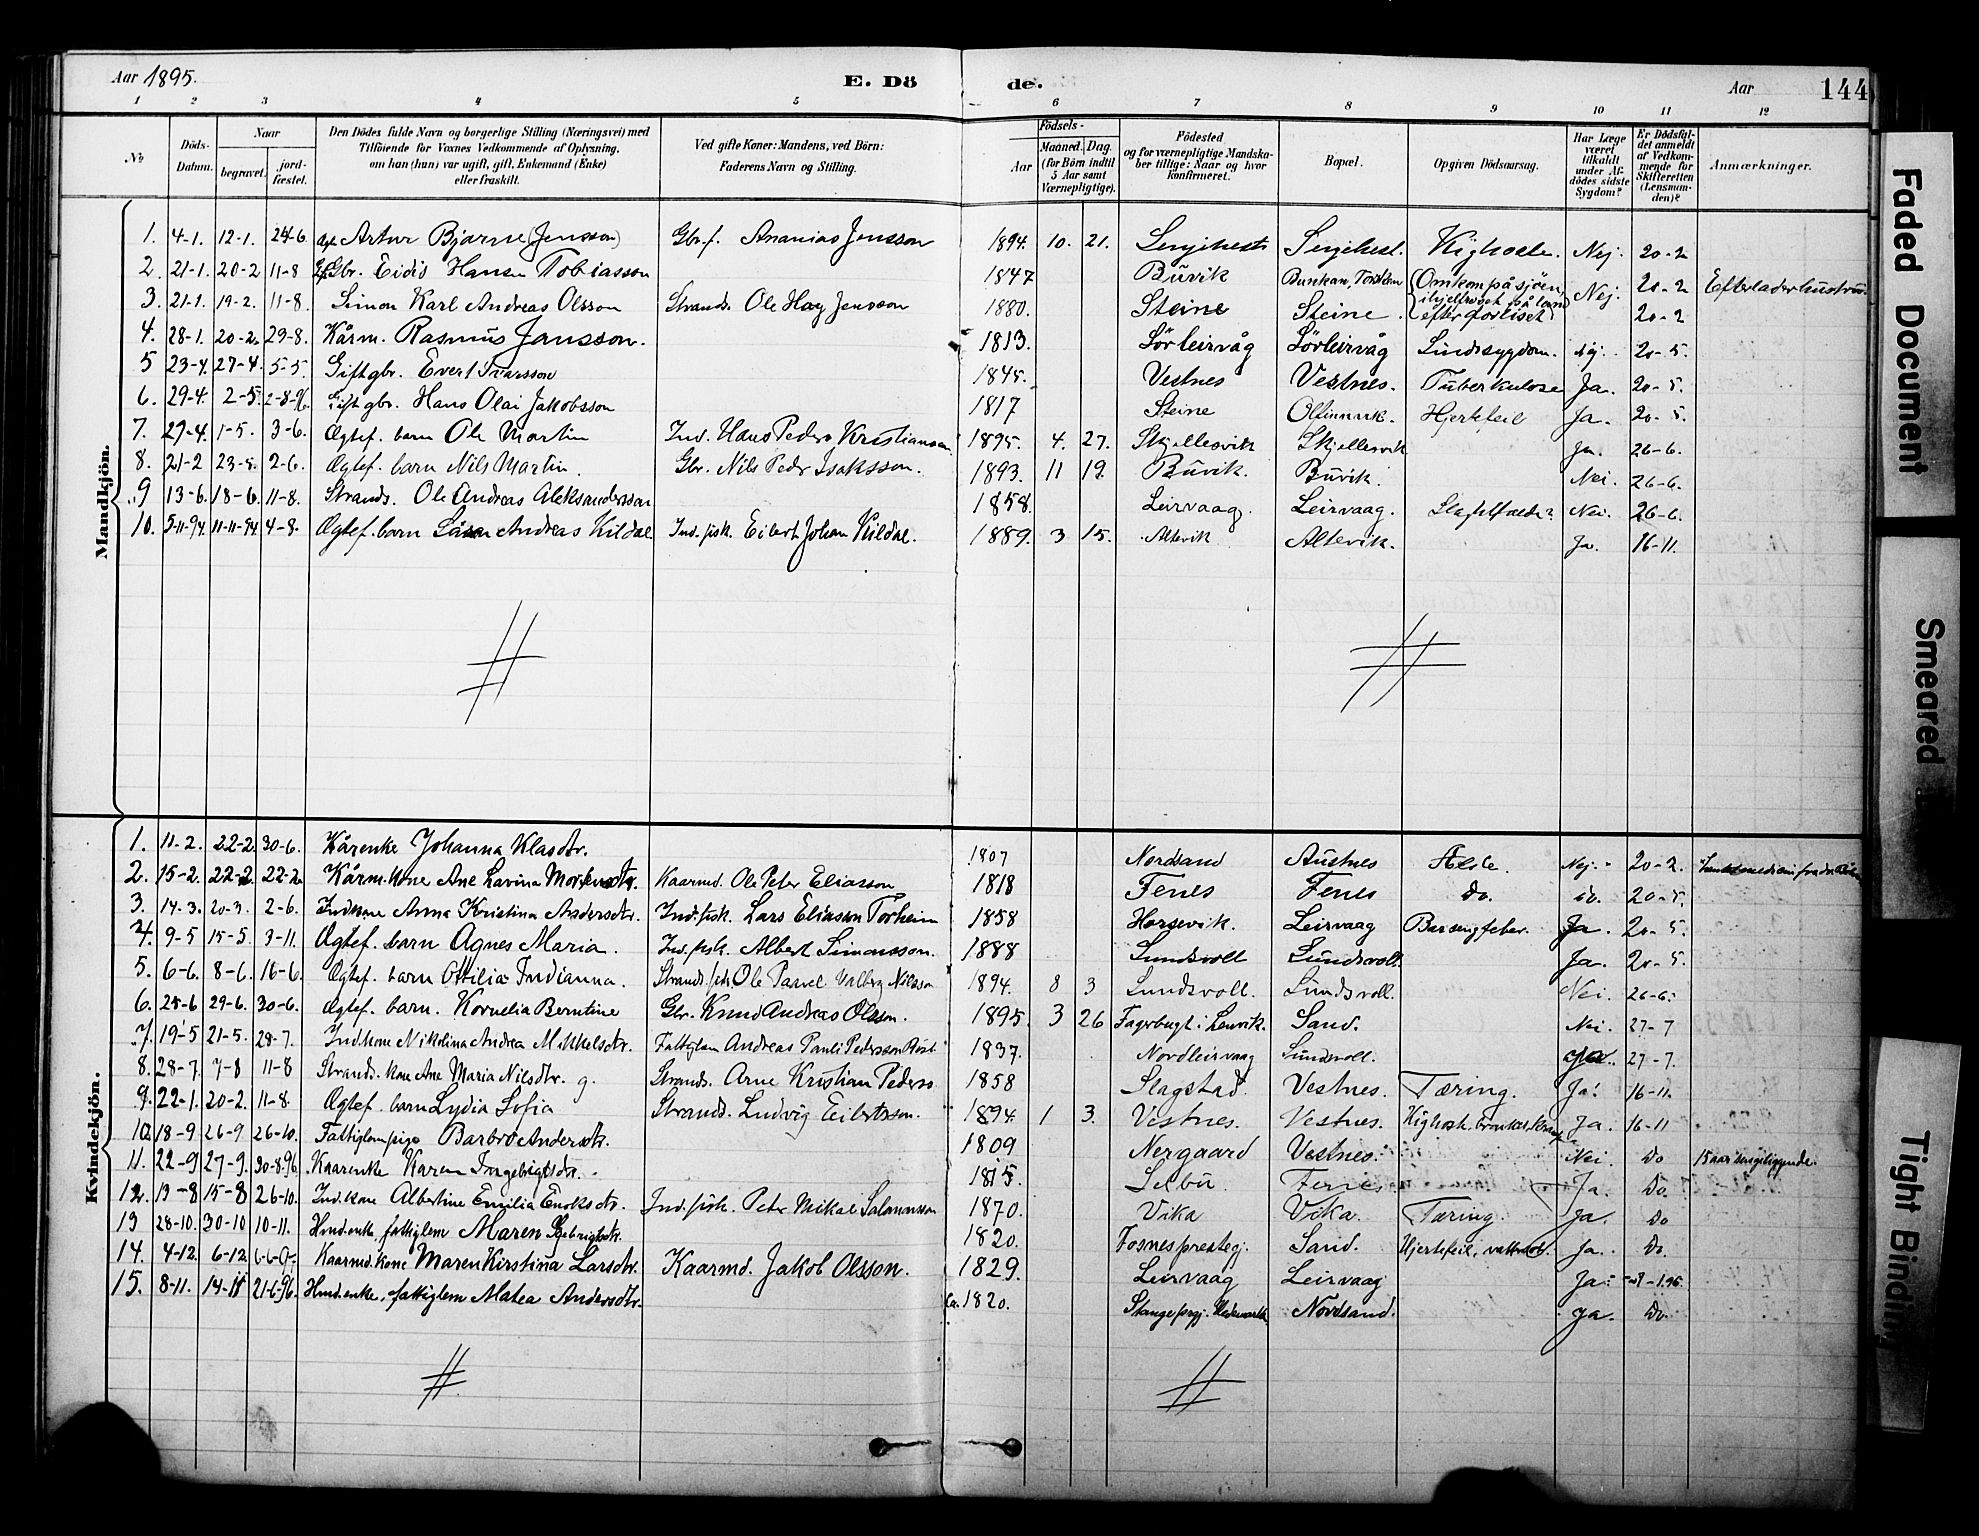 Aar 1895.
E. Dö
de.
Aar
144
1 2 3 4 5 6 7 8 9 10 11 12
No
Döds-Datum.
Naar
begravet.
jord-fæstet.
Den Dödes fulde Navn og borgerlige Stilling (Næringsvei) med
Tilföiende for Voxnes Vedkommende af Oplysning,
om han (hun) var ugift, gift, Enkemand (Enke)
eller fraskilt.
Ved gifte Koner: Mandens, ved Börn:
Faderens Navn og Stilling.
Födsels-
Aar
Maaned. Dag.
(for Börn indtil
5 Aar samt
Værnepligtige).
Födested
og for værnepligtige Mandska-
ber tillige: Naar og hvor
konfirmeret.
Bopæl.
Opgiven Dödsaarsag.
Har Læge
været
tilkaldt
under Af-
dödes sidste
Sygdom?
Er Dödsfal-
det anmeldt
af Vedkom-
mende for
Skifteretten
(Lensman-
den)?
Anmærkninger.
Mandkjön.
1. 4-1. 12-1. 24-6. Artur Bjarne (Jensson) Gbr.f. Ananias Jensson 1894. 10. 21. Kighoste. Nej. 20-2
2. 21-1. 20-2 11-8 Gbr. Eidis Hansen Tobiasson 1847 Buvik Omkom på sjöen Nej. 20-2 Efterlader hustru
3. 21-1. 19-2. 11-8. Simon Karl Andreas Olsson Strands. Ole Hag Jensson 1880. Steine Steine efter forliset. 20-2
4. 28-1. 20-2. 29-8. Kårm. Rasmus Jansson. 1813. Sörleirvåg Sörleirvåg 20-5.
5 23-4. 27-4. 5-5. Gift gbr. Evert Ivarsson 1845. Vestnes Vestnes. Tuberkulose Ja. 20-5.
6. 29-4. 2-5. 2-8-96. Gift gbr. Hans Olai Jakobsson 1817 Steine Hjertefeil Ja. 20-5.
7. 29-4. 1-5. 3-6. Ægtef. barn Ole Martin Ind. Hans Peder Kristiansen 1895. 4. 27. Skjellesvik Skjellesvik Ja. 26-6.
8. 21-2 23-5. 2-6. Ægtef. barn Nils Martin. Gbr. Nils Peder Isaksson. 1893. 11 19. Buvik. Buvik. Nei. 26-6.
9 13-6. 18-6. 11-8. Strands. Ole Andreas Aleksandersson 1858. Leirvaag. Leirvaag. Nei. 26-6.
10. 5-11-94. 11-11-94 4-8. Ægtef. barn Andreas Kildal Ind. fisk. Eibert Johan Kildal. 1889. 3 15. Altevik Altevik. Ja. 16-11.
Kvindekjön.
1. 11-2. 22-2. 30-6. Kårenke Johanna Klasdtr. 1807 Nordsand Austnes Ælde. Nej. 20-2.
2. 15-2. 22-2. 22-2. Kårm. kone Ane Lavina Mortensdtr. Kaarmd. Ole Peter Eliasson 1818 Fenes Fenes Do. do. 20-5.
3. 14-3. 20-3. 2-6. Indkone Anna Kristina Andersdtr. Ind. fisk. Lars Eliasson Torheim 1858 Horsevik. Leirvaag Barsengfeber. Ja. 20-5.
4. 9-5 15-5. 3-11. Ægtef. barn Agnes Maria. Ind. fisk. Albert Simonsson. 1888 Lundsvoll Lundsvoll. Ja. 20-5.
5. 6-6. 8-6. 16-6. Ægtef. barn Ottilia Indianna. Strands. fisk. Ole Paavel Valberg Nilsson 1894. 8 3 Lundsvoll. Lundsvoll. Nei. 26-6.
6. 25-6 29-6. 30-6. Ægtef. barn. Kornelia Berntine Gbr. Knud Andreas Olsson. 1895. 3 26 Fagerbugt i Lenvik. Sand. Nei. 27-7
7. 19-5 21-5. 28-7. Indkone Nikolina Andrea Mikkelsdtr. Fattiglem Andreas Pauli Pedersson 1837. Nordleirvaag Lundsvoll. Ja. 27-7.
8. 28-7. 7-8 11-8 Strands. kone Ane Maria Nilsdtr. g. Strands. Arne Kristian Peders. 1858 Slagstad. Vestnes. Tæring. Ja. 16-11.
9. 22-1. 20-2. 11-8. Ægtef. barn Lydia Sofia Strands. Ludvig Eibertsson. 1894. 1 3. Vestnes. Vestnes. Kighost. Ja. 16-11
10. 18-9 26-9 26-10. Fattiglempige Barbro Andersdtr. 1809 Nergaard Vestnes. Nei. Do 15 aar sengeliggende.
11. 22-9 27-9. 30-8-96. Kaarenke Karen Ingebrigtsdtr. 1815. Selbu. Fenes Ja. Do.
12. 13-8 15-8 26-10. Ind. kone Albertine Emilia Enoksdtr. Ind. fisk. Peter Mikal Salamonsson 1870. Vika Vika. Tæring. Ja. Do
13 28-10. 30-10 10-11. Husd. enke, fattiglem Maren 1820. Fosnes prestegj. Sand. Hjertefeil, vattersot. Ja. Do.
14. 4-12. 6-12. Kaarmd. kone Maren Kirstina Larsdtr. Kaarmd. Jakob Olsson. 1829. Leirvaag Leirvaag Ja.
15. 8-11. 14-11 21-6-96. Husd. enke, fattiglem Matea Andersdtr. Ca. 1820. Stange prgj. Hedemarken Nordsand. Ja. Do.
Faded Document
Smeared
Tight Binding